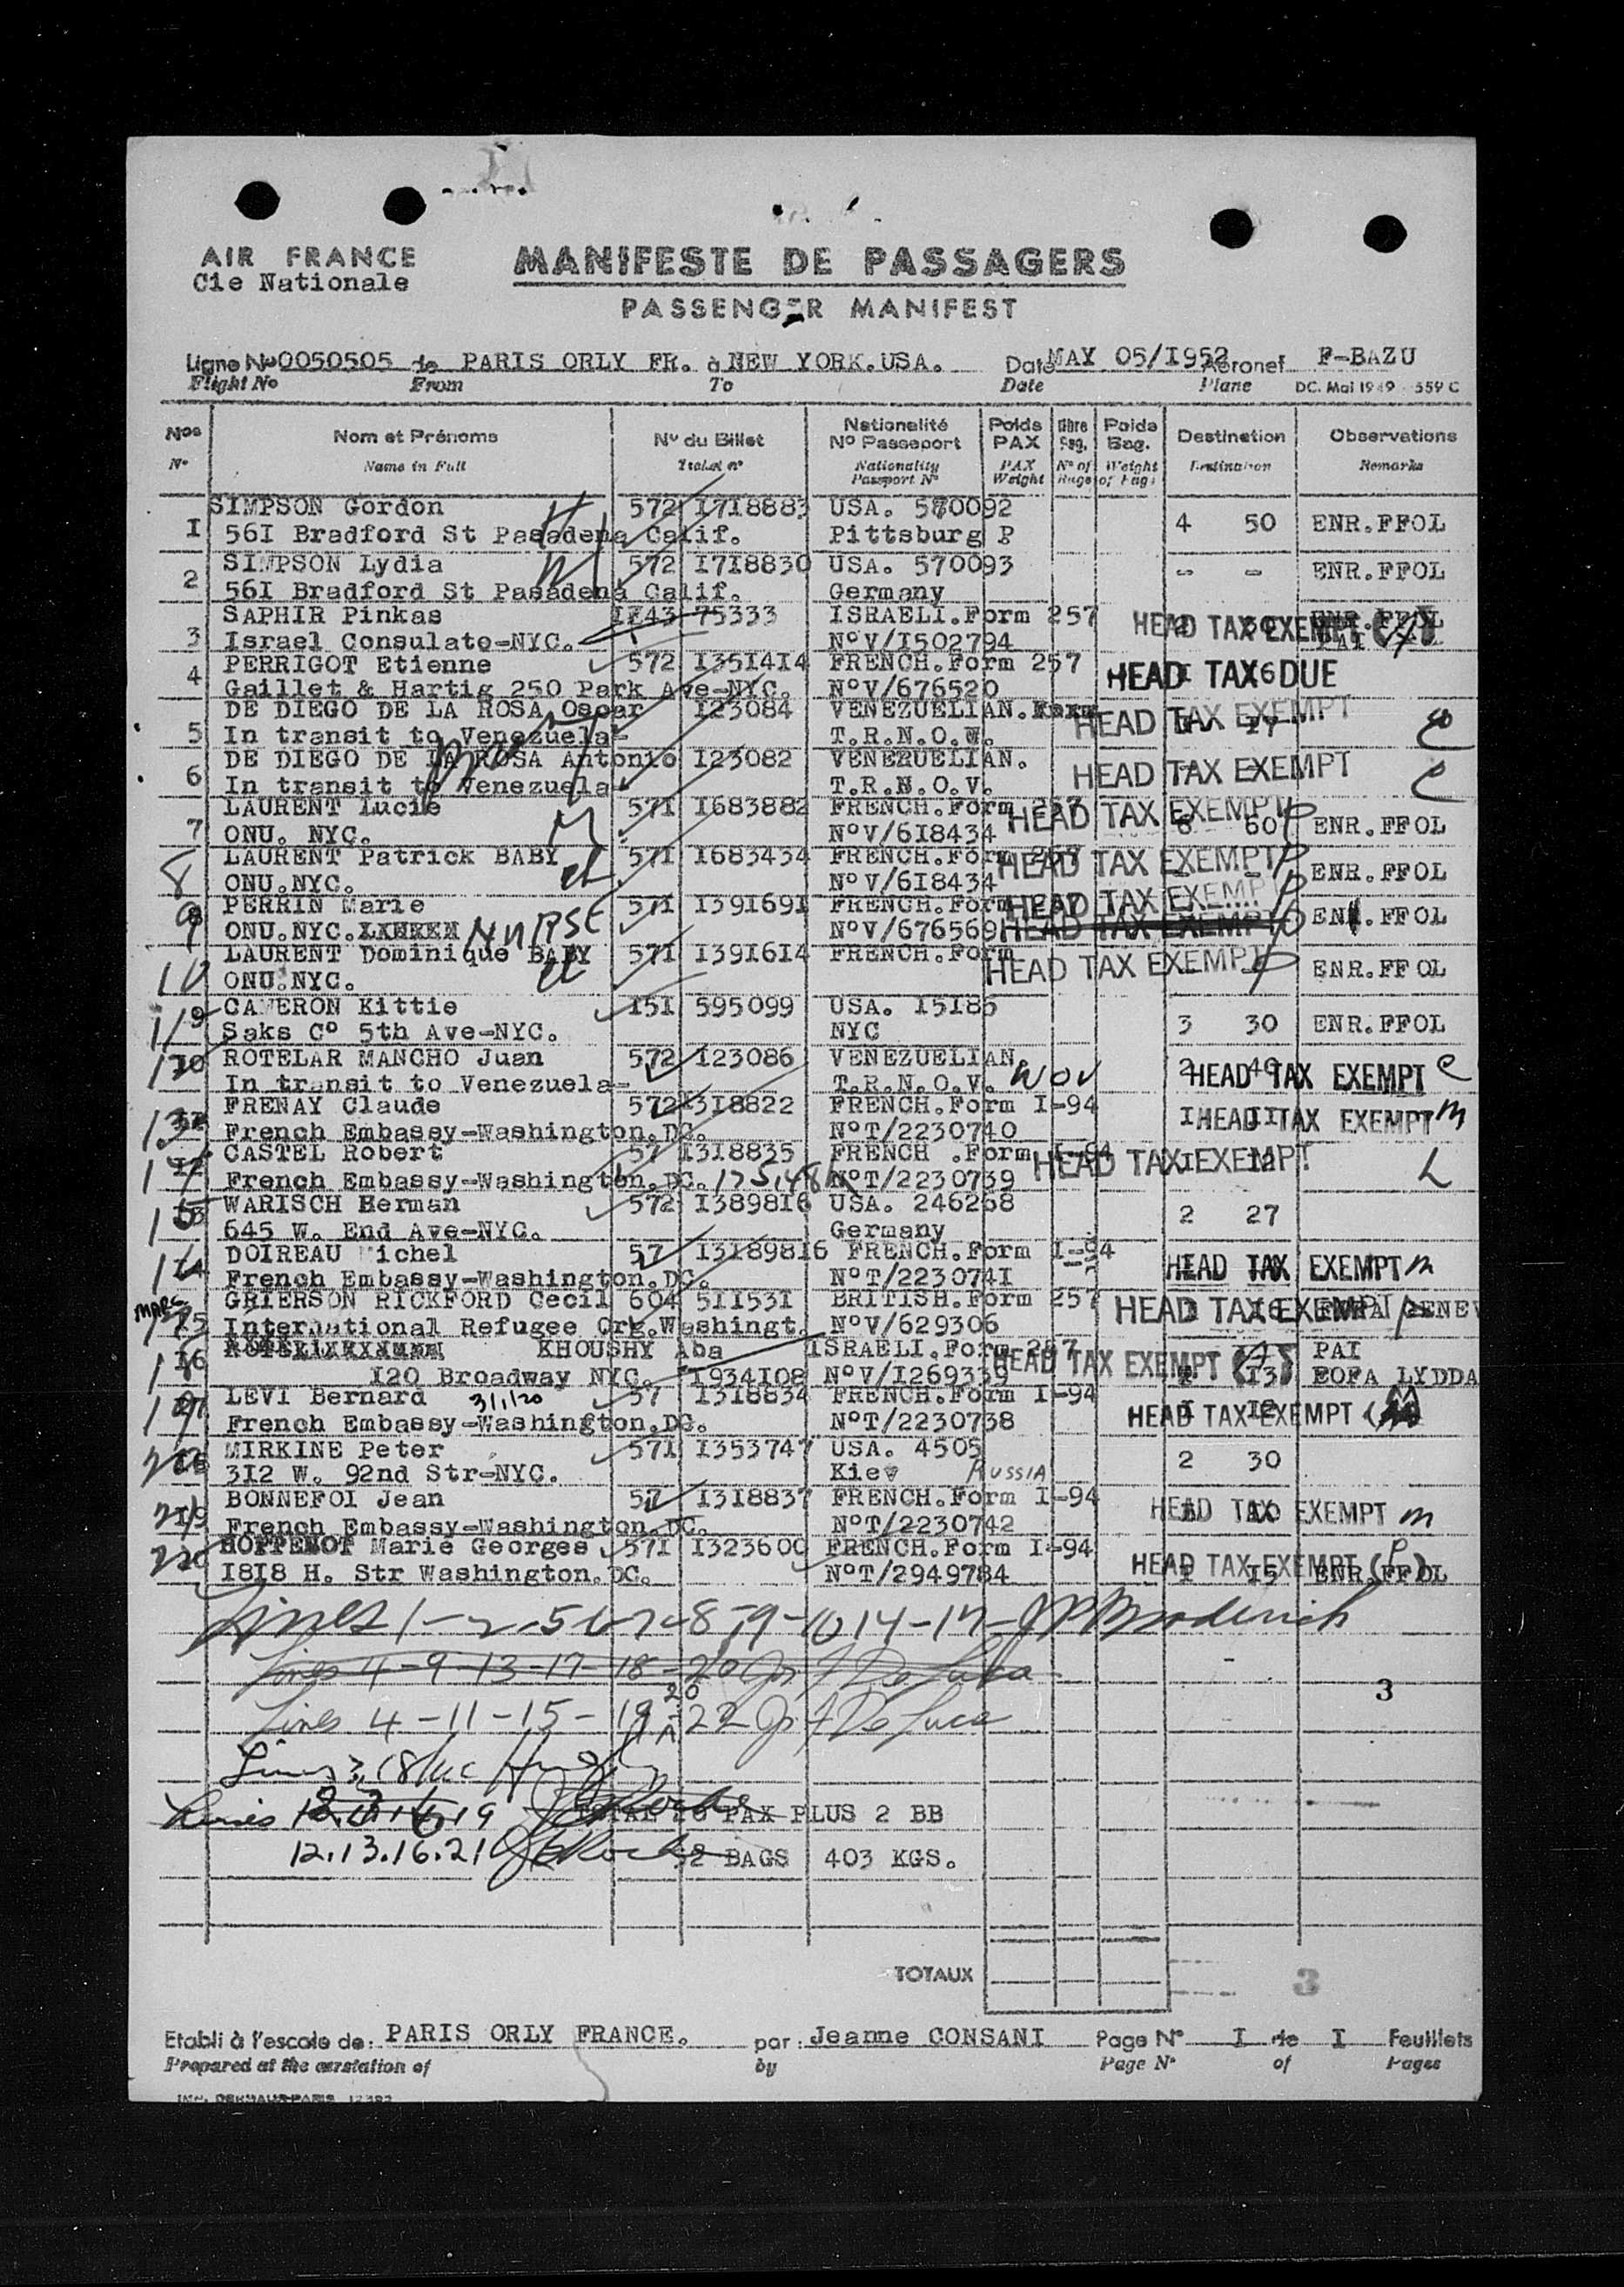 AIR FRANCE
Cie Nationale
MANIFESTE DE PASSAGERS
PASSENGER MANIFEST
Ligne No 0050505 de PARIS ORLY FR. à NEW YORK.USA. Date MAY 05/I952 Aéronef F-BAZU
Flight No From To Date Plane DC. Mai 1949 559 C
Nos Nom et Prénoms No du Billet Nationalité No Passeport Poids PAX Nbre Bag. Poids Bag. Destination Observations
No Name in Full Ticket no Nationality Passport No PAX Weight No of Bags Weight of Bags Destination Remarks
SIMPSON Gordon 572 I7I8883 USA. 570092
I 56I Bradford St Pasadena Calif. Pittsburg P 4 50 ENR.FFOL
SIMPSON Lydia 572 I7I8830 USA. 570093
2 56I Bradford St Pasadena Calif. Germany - - ENR.FFOL
SAPHIR Pinkas I743 75333 ISRAELI.Form 257 HEAD TAX EXEMPT
3 Israel Consulate-NYC. N°V/I502794 PAI
PERRIGOT Etienne 572 I35I4I4 FRENCH.Form 257
4 Gaillet & Hartig 250 Park Ave-NYC. N°V/676520 HEAD TAX DUE
DE DIEGO DE LA ROSA Oscar I23084 VENEZUELIAN.
5 In transit to Venezuela- T.R.N.O.W. HEAD TAX EXEMPT
DE DIEGO DE LA ROSA Antonio I23082 VENEZUELIAN.
6 In transit to Venezuela- T.R.N.O.V. HEAD TAX EXEMPT
LAURENT Lucie 57I I683882 FRENCH.Form 257 HEAD TAX EXEMPT
7 ONU. NYC. N°V/6I8434 60 ENR.FFOL
LAURENT Patrick BABY 57I I683434 FRENCH.Form HEAD TAX EXEMPT
8 ONU.NYC. N°V/6I8434 ENR.FFOL
PERRIN Marie 57I I39I69I FRENCH.Form HEAD TAX EXEMPT
9 ONU.NYC. NURSE N°V/676569 HEAD TAX EXEMPT FFOL
LAURENT Dominique BABY 57I I39I6I4 FRENCH.Form
10 ONU.NYC. HEAD TAX EXEMPT ENR.FFOL
CAMERON Kittie I5I 595099 USA. I5I86
11 Saks C° 5th Ave-NYC. NYC 3 30 ENR.FFOL
ROTELAR MANCHO Juan 572 I23086 VENEZUELIAN.
In transit to Venezuela- T.R.N.O.V. WOV HEAD TAX EXEMPT
FRENAY Claude 572 I3I8822 FRENCH.Form I-94
13 French Embassy-Washington.DC. N°T/2230740 HEAD TAX EXEMPT m
CASTEL Robert 57 I3I8835 FRENCH .Form I-94
French Embassy-Washington.DC. N°T/2230739 HEAD TAX EXEMPT L
WARISCH Herman 572 I3898I6 USA. 246268
15 645 W. End Ave-NYC. Germany 2 27
DOIREAU Michel 57 I3I898I6 FRENCH.Form I-94
French Embassy-Washington.DC. N°T/223074I HEAD TAX EXEMPT m
GRIERSON RICKFORD Cecil 604 5II53I BRITISH.Form 257
International Refugee Org.Washingt. N°V/629306 HEAD TAX EXEMPT
KHOUSHY Aba ISRAELI.Form 257 PAI
I20 Broadway NYC. I934I08 N°V/I269339 HEAD TAX EXEMPT I3 EOFA LYDDA
LEVI Bernard 57 I3I8834 FRENCH.Form I-94
French Embassy-Washington.DC. N°T/2230738 HEAD TAX EXEMPT
MIRKINE Peter 57I I353747 USA. 4505
3I2 W. 92nd Str-NYC. Kiev RUSSIA 2 30
BONNEFOI Jean 57 I3I8837 FRENCH.Form I-94
French Embassy-Washington.DC. N°T/2230742 HEAD TAX EXEMPT m
HOPPENOT Marie Georges 57I I323600 FRENCH.Form I-94
I8I8 H. Str Washington.DC. N°T/2949784 HEAD TAX EXEMPT (P) I5 ENR.FFOL
Lines 1-2-5-6-7-8-9-10 14-17-
Lines 4-9-13-17-18-20
3
Lines 4-11-15-19-20-22
Lines 3, 18
Lines
TOTAL 20 PAX PLUS 2 BB
12.13.16.21
32 BAGS 403 KGS.
TOTAUX
3
Etabli à l'escale de: PARIS ORLY FRANCE. par: Jeanne CONSANI Page No I de I Feuillets
Prepared at the airstation of by Page No of Pages